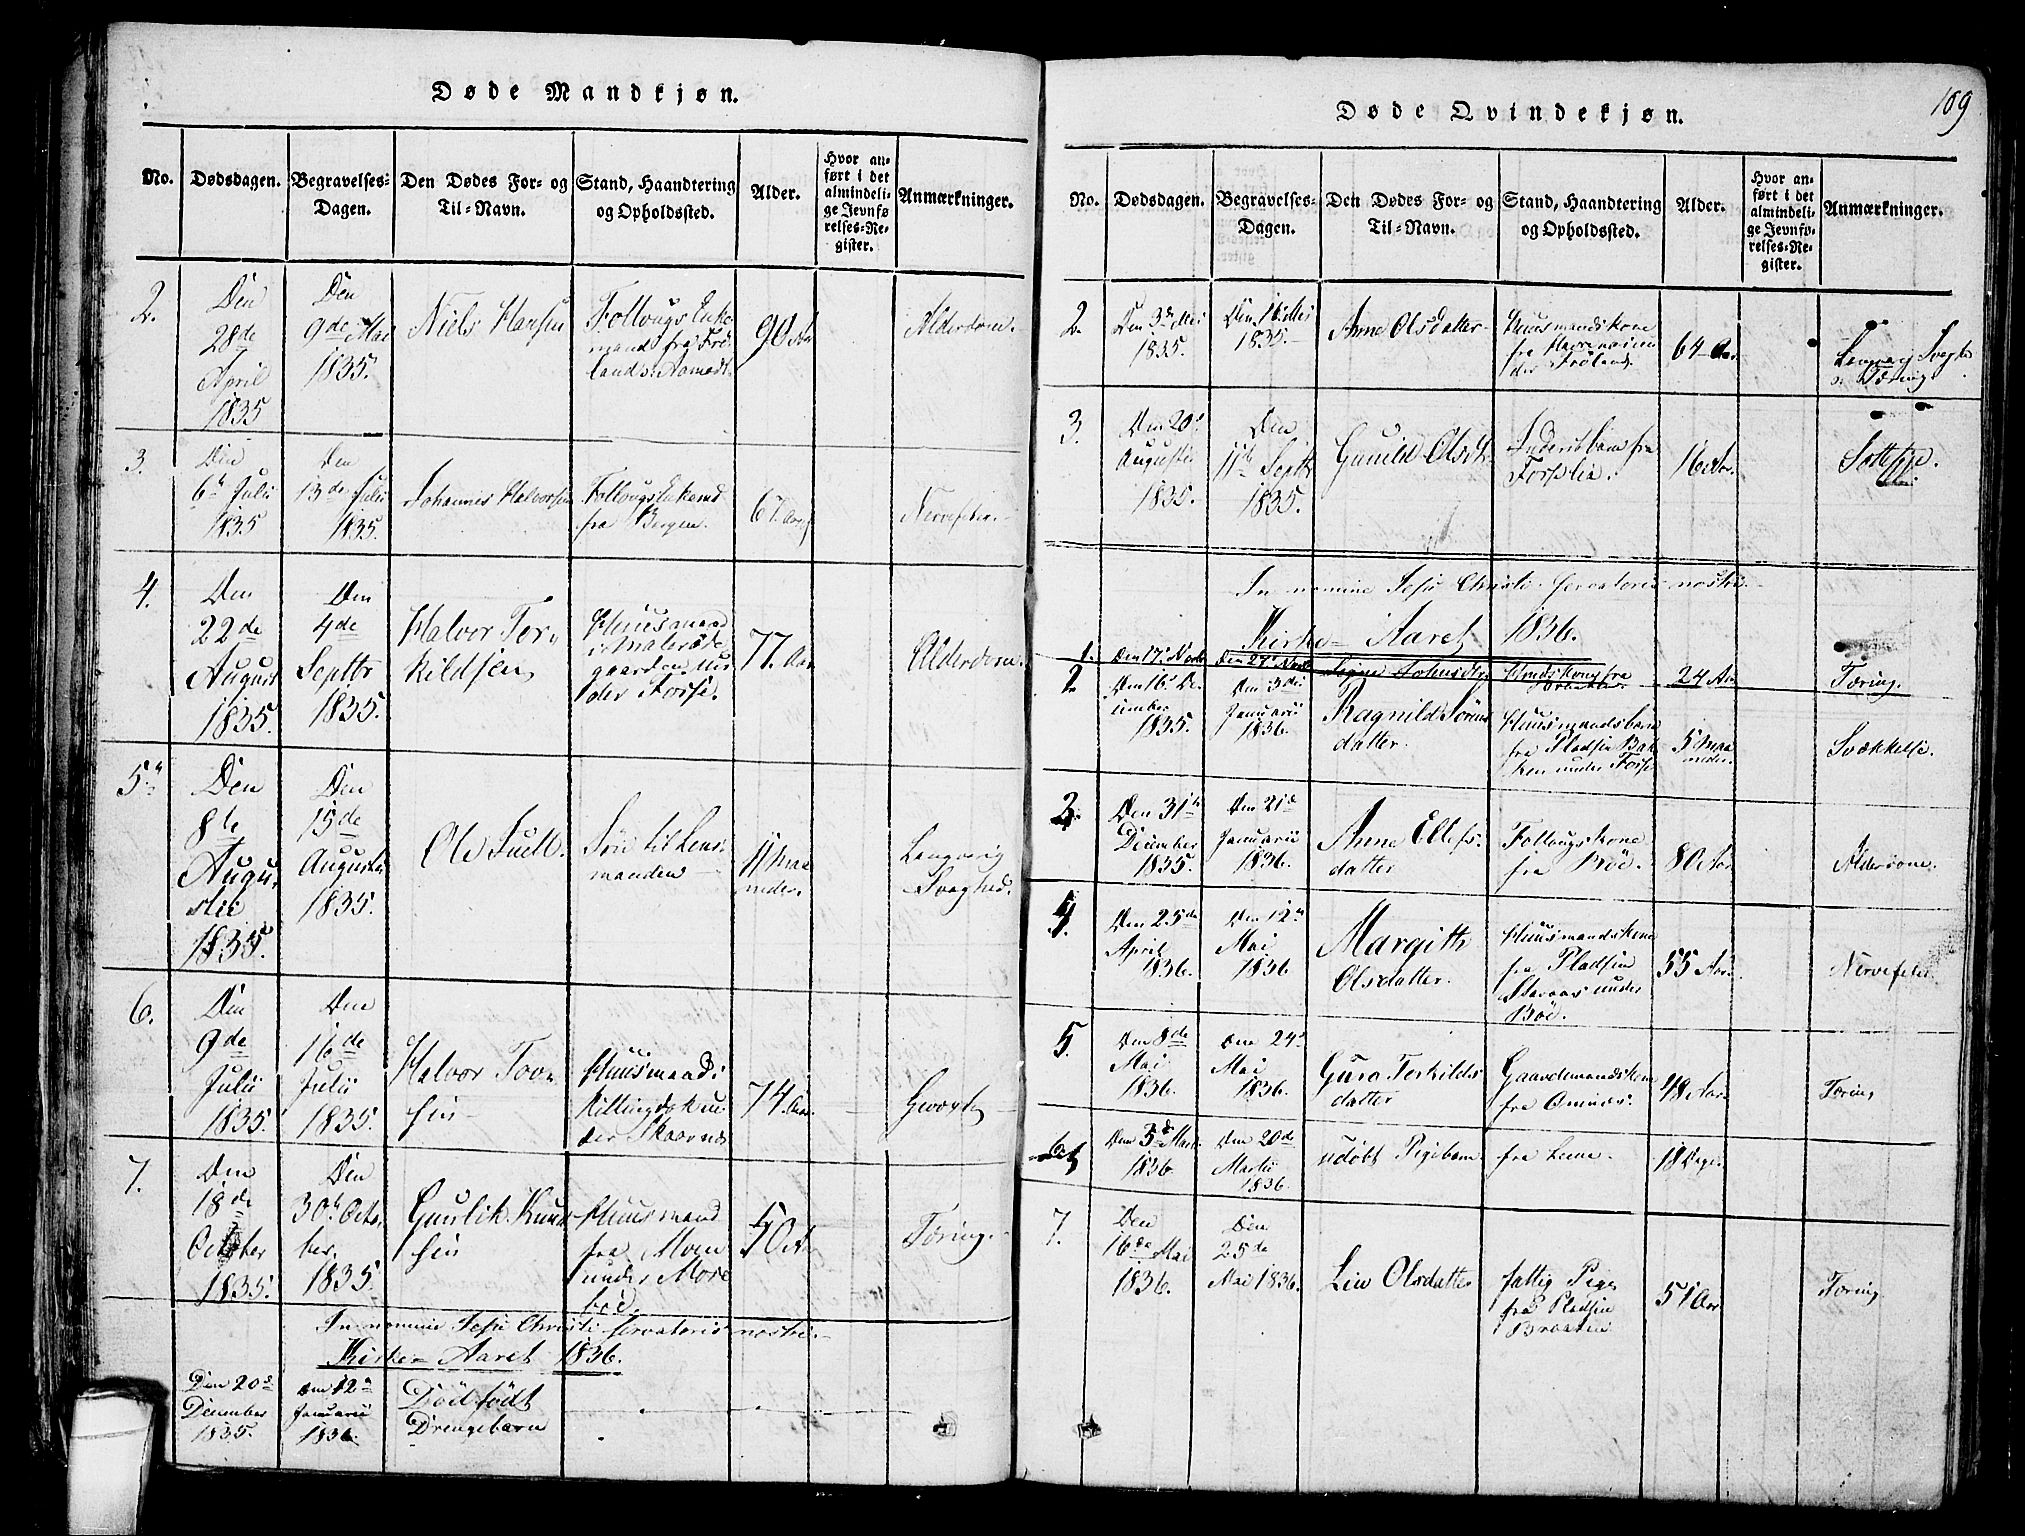 Døde Mandkjøn.
No.
Dødsdagen.
Begravelses-
Dagen.
Den Dødes For- og
Til-Navn.
Stand, Haandtering
og Opholdssted.
Alder.
Hvor an-
ført i det
almindeli-
ge Jevnfø
relses-Re-
gister.
Anmærkninger.
2.
Den
28de
April
1835
Den
9de Mai
1835.
Niels Hansen
Follougs Enke-
mand fra Frö-
lands:
90 Aar
Alderdom.
3.
Den
6te Julii
1835
Den
13de Julii
1835.
Johannes Halvorsen
Follougs Enkemd
fra Bergen.
67 Aar
Nervefeber.
4.
Den
22de
August
1835.
Den
4de
Septbr
1835.
Halvor Ter-
kildsen
Huusmand
gaarden un-
der Forse.
77. Aar
Alderdom.
5.
Den
8de
Augu-
stii
1835.
Den
15de
Augustii
1835.
Ole Juell.
Sön til Lens-
manden
11 Maa
neder.
Langvarig
Svaghed.
6.
Den
9de
Julii
1835.
Den
16de
Julii
1835.
Halvor Tov-
sen
Huusmand i
un-
der Skaarnæs
74. Aar
7.
Den
18de
October
1835.
Den
30te Octo-
ber.
1835.
Gunlik Knud-
sen
Huusmand
fra Moen
under More
böe.
50 Aar
Tæring.
In nomine Jesu Christi servatoris nostri.
Kirke-Aaret 1836.
Den 20de
December
1835.
Den 12te
Januarii
1836.
Död födt
Drengebarn
Døde Qvindekjøn.
109
No.
Dødsdagen.
Begravelses-
Dagen.
Den Dødes For- og
Til-Navn.
Stand, Haandtering
og Opholdssted.
Alder.
Hvor an-
ført i det
almindeli-
ge Jevnfø-
relses-Re-
gister.
Anmærkninger.
2.
Den 3de Mai
1835.
Den 16 Mai
1835.
Anne Olsdatter
Huusmandskone
fra
der Fröland.
64 Aar
Langvarig Svaghed
Tæring
3.
Den 20de
Augusti
1835.
Den
11te Septbr
1835.
Gunild Olsdtr
Inderstbarn fra
Forslie.
16 Aar.
In nomine Jesu Christi servatoris nostri.
Kirke-Aaret 1836.
1.
Den 17de Novbr
Den 27de Novbr
Signe Johnsdtr
24 Aar
Tæring.
2
Den 16de De-
cember
1835.
Den 3die
Januarii
1836.
Ragnild Sörens
datter.
Huusmandsbarn
fra Pladsen Bak
ken under Forse
5 Maa
neder.
Svækkelse.
3.
Den 31te
December
1835.
Den 21de
Januarii
1836.
Anne Ellefs-
datter
Follougskone
fra Böe.
80 Aar
Alderdom.
4.
Den 25de
April
1836.
Den 12te
Mai
1836
Margith
Olsdatter.
Huusmandskone
fra Pladsen
under
Böe.
55 Aar
Nervefeber
5.
Den 8de
Mai
1836.
Den 24de
Mai
1836.
Guro Terkilds
datter
Gaardmandskone
fra Omnæs.
48 Aar
Tæring
6
Den 3de Mai
1836.
Den 20de
Martii
1836.
udöbt Pigebarn
fra Leene.
18 Dage
7.
Den
16de Mai
1836.
Den
25de
Mai 1836.
Liv Olsdatter
fattig Pige
fra Pladsen
Braaten
51 Aar
Tæring